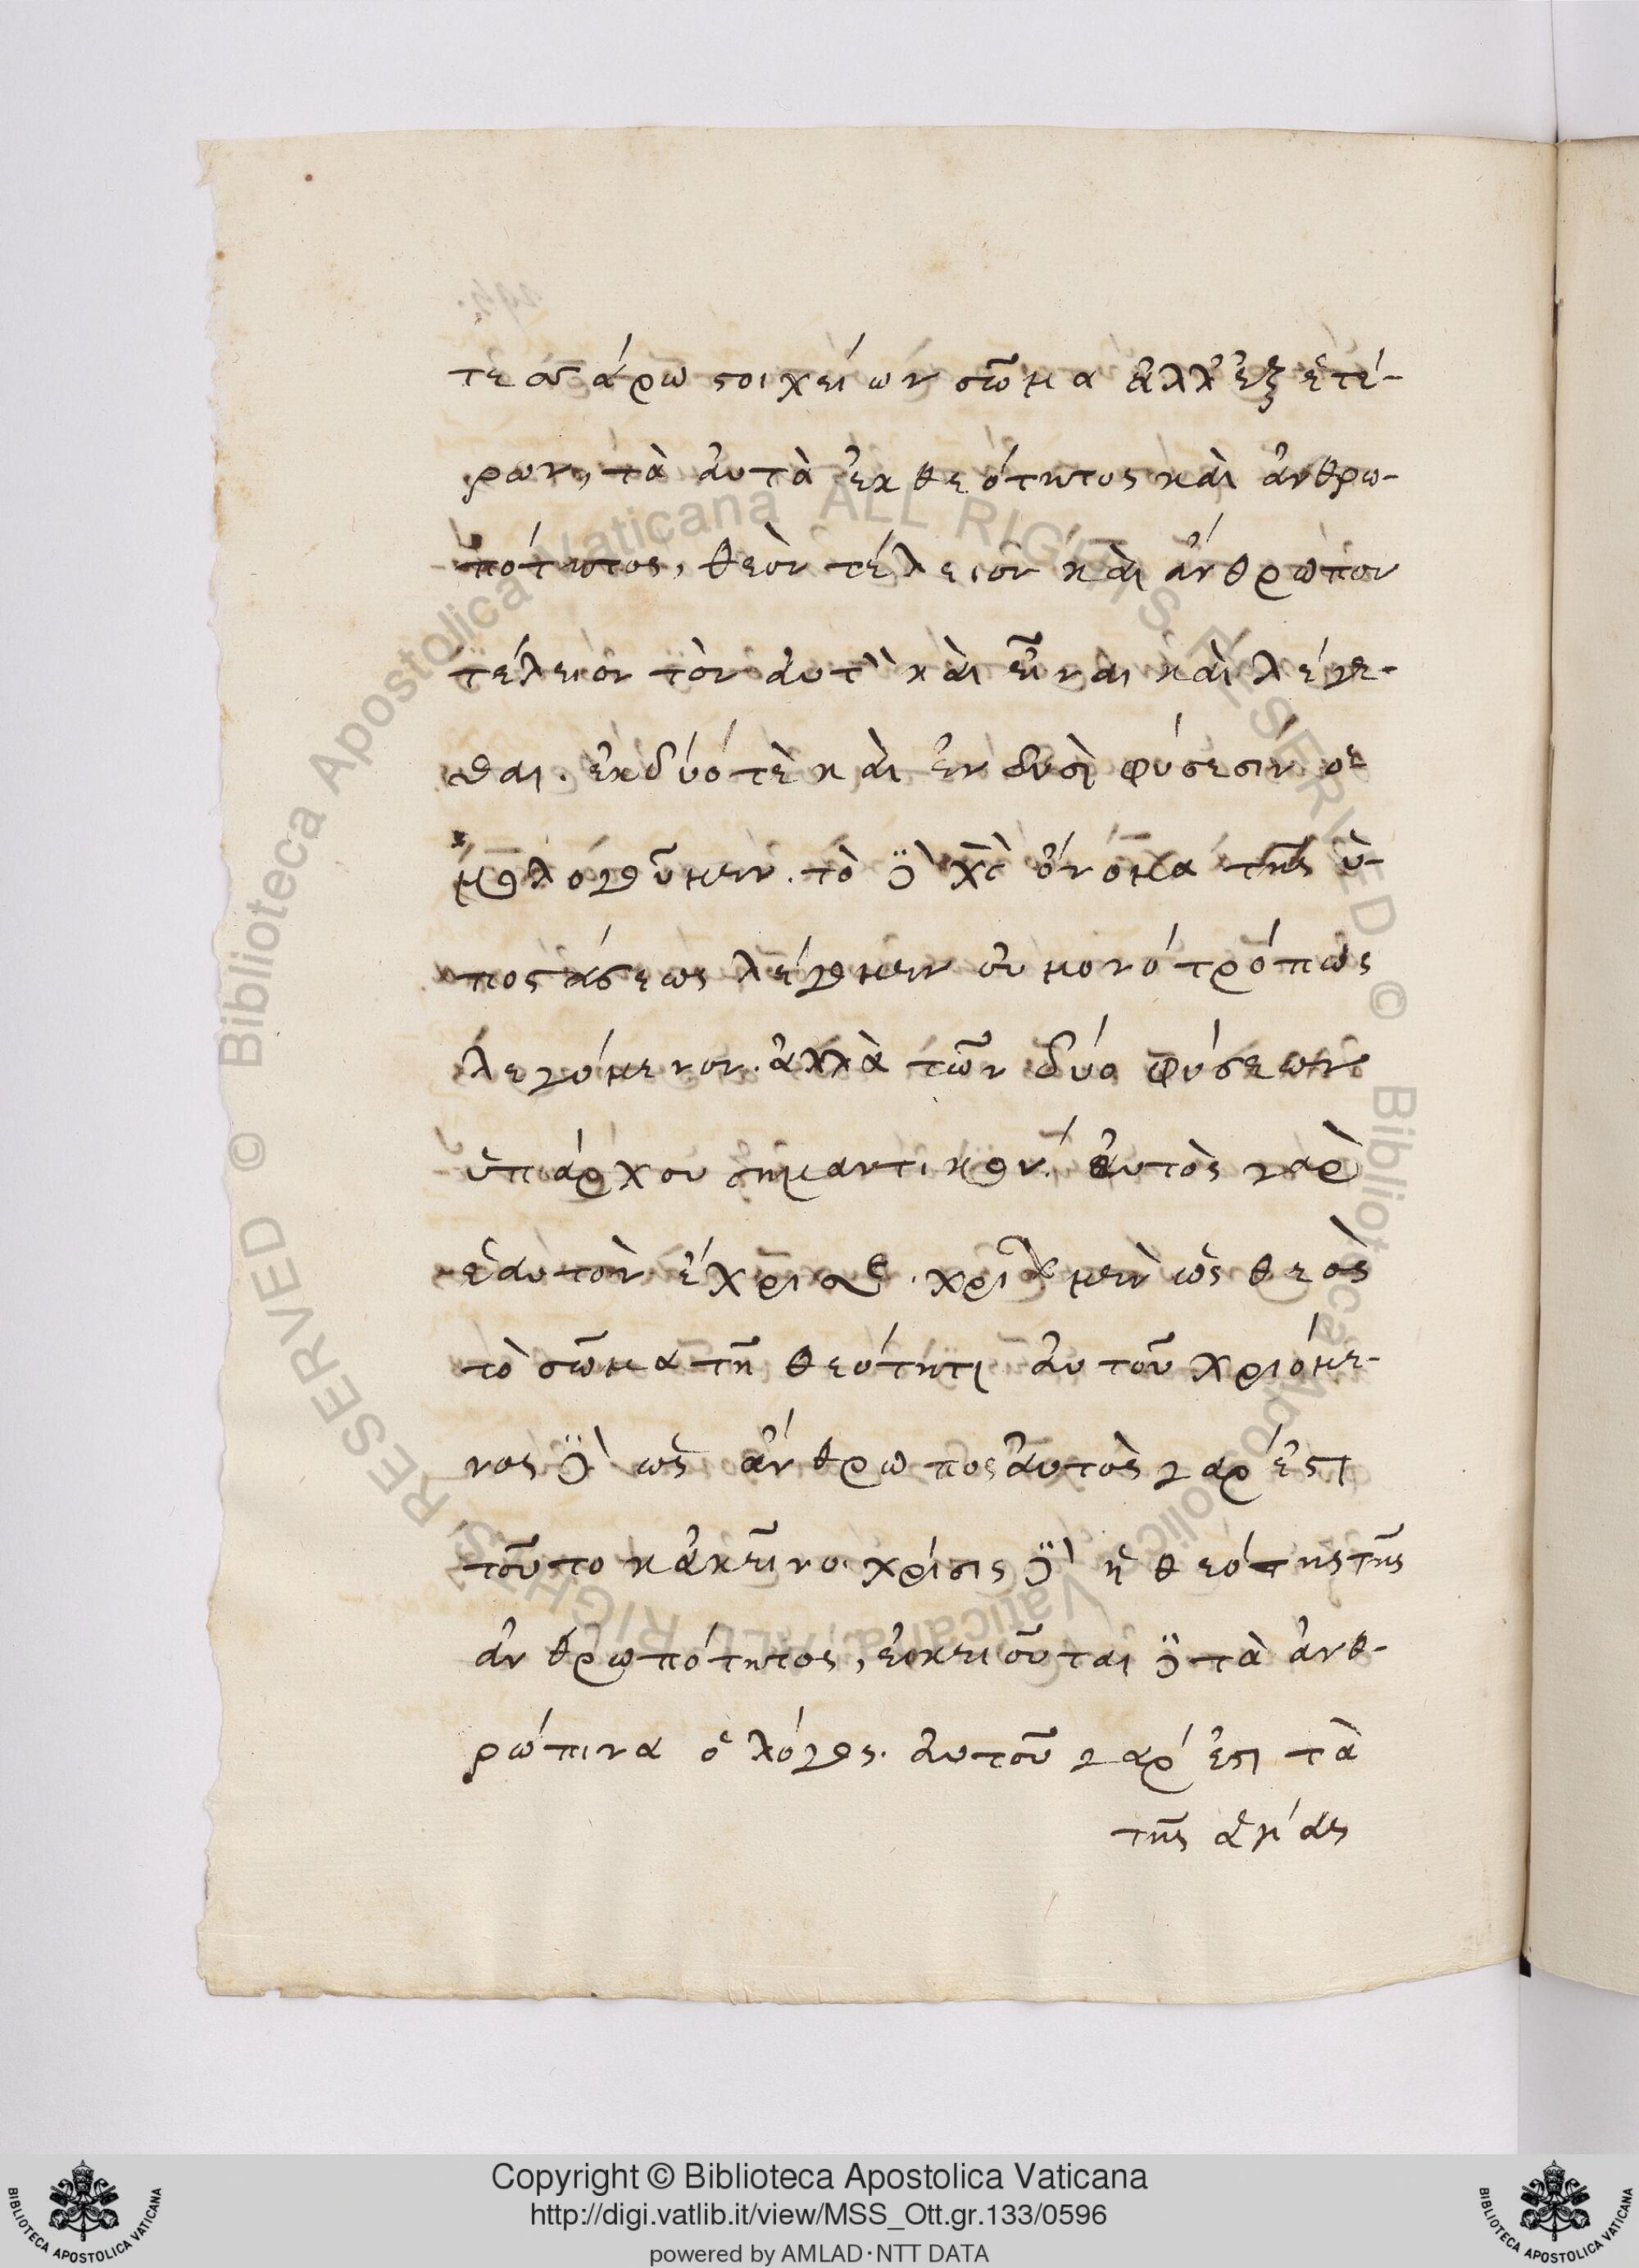 τεσσάρω στοιχείων σῶμα ἀλλ' ἐξ ἑτέ-
ρων, τὰ αὐτὰ ἐκ θεότητος καὶ ἀνθρω-
πότητος, θεὸν τέλειον καὶ ἄνθρωπον
τέλειον τὸν αὐτ καὶ εἶναι καὶ λέγε-
σθαι. ἐκ δύο τὲ καὶ ἐν δυσὶ φύσεσιν ὁ
μολογοῦμεν. τὸ δὲ χς ὄνομα τῆς ὑ-
ποστάσεως λέγομεν οὐ μονότροπως
λεγόμενον. ἀλλὰ τῶν δύο φύσεων
ὑπάρχου σημαντικόν. αὐτὸς γὰρ
ἑαυτὸν ἔχρισε. χρι μὲν ὡς θεὸς
τὸ σῶμα τῆ θεότητι αὐτοῦ χριόμε-
νος δὲ ὡς ἄνθρωπος αὐτὸς γάρ ἐστι
τοῦτο κἀκεῖνο. χρίσις δὲ ἡ θεότης τῆς
ἀνθρωπότητος, οἰκειοῦται δὲ τὰ ἀνθ-
ρώπινα ὁ λόγος. αὐτοῦ γάρ ἐστι τὰ
τῆς ἁγίας
Copyright © Biblioteca Apostolica Vaticana
http://digi.vatlib.it/view/MSS_Ott.gr.133/0596
powered by AMLAD·NTT DATA
BIBLIOTECA APOSTOLICA VATICANA
BIBLIOTECA APOSTOLICA VATICANA
© Biblioteca Apostolica Vaticana ALL RIGHTS RESERVED © Biblioteca Apostolica Vaticana ALL RIGHTS RESERVED